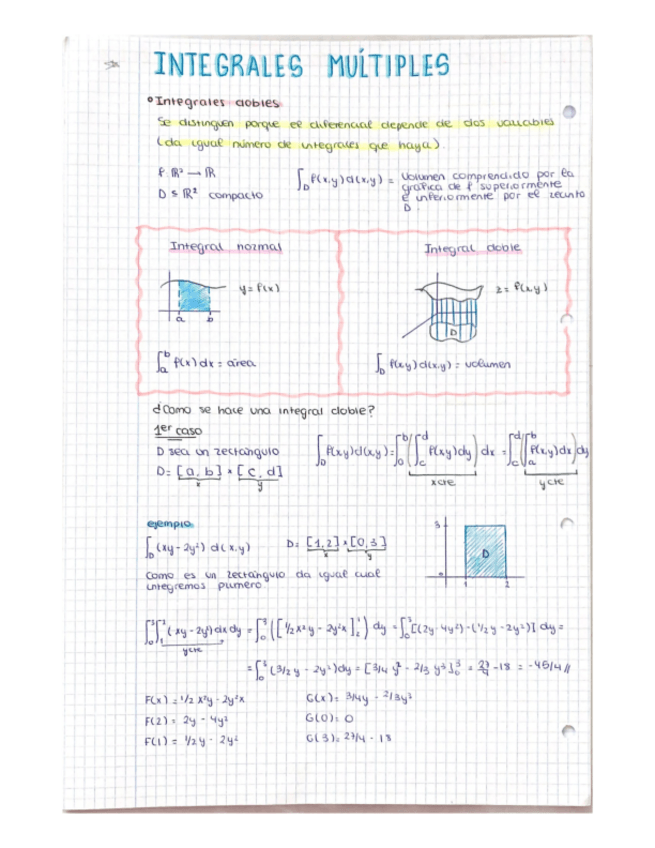 INTEGRALES MÚLTIPLES
° Integrales dobles
Se distinguen porque el diferencial depende de dos variables
(da igual número de integrales que haya).
f: ℝ² → ℝ
D ⊆ ℝ² compacto
∫_D f(x,y) d(x,y) = Volumen comprendido por la
gráfica de f superiormente
e inferiormente por el recinto
D.
Integral normal
y = f(x)
a b
∫_a^b f(x) dx = área
Integral doble
z = f(x,y)
D
∫_D f(x,y) d(x,y) = volumen
¿Como se hace una integral doble?
1er caso
D sea un rectángulo
D = [a, b] × [c, d]
x y
∫_D f(x,y) d(x,y) = ∫_a^b (∫_c^d f(x,y) dy) dx = ∫_c^d (∫_a^b f(x,y) dx) dy
x cte y cte
ejemplo
∫_D (xy - 2y²) d(x,y) D = [1,2] × [0,3]
x y
Como es un rectángulo da igual cual
integremos primero
3
D
0 1 2
∫_0^3 ∫_1^2 (xy - 2y²) dx dy = ∫_0^3 ([1/2 x²y - 2y²x]_1^2) dy = ∫_0^3 [(2y - 4y²) - (1/2 y - 2y²)] dy =
y cte
= ∫_0^3 (3/2 y - 2y²) dy = [3/4 y² - 2/3 y³]_0^3 = 27/4 - 18 = -45/4 //
F(x) = 1/2 x²y - 2y²x
F(2) = 2y - 4y²
F(1) = 1/2 y - 2y²
G(x) = 3/4y - 2/3y³
G(0) = 0
G(3) = 27/4 - 18